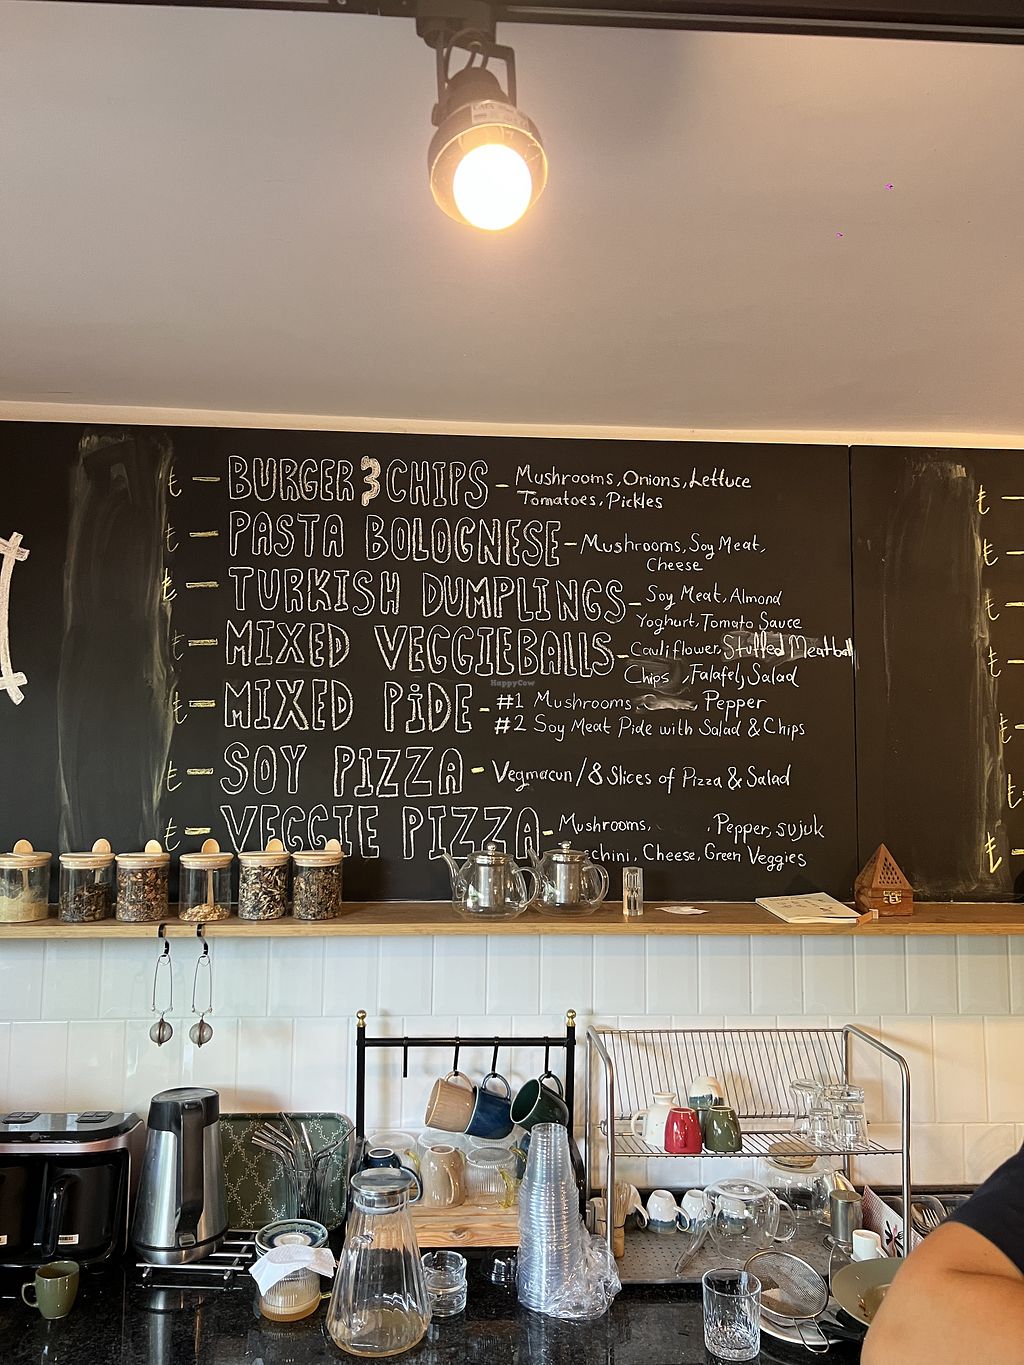 ₺ — BURGER & CHIPS - Mushrooms, Onions, Lettuce
Tomatoes, Pickles
₺ — PASTA BOLOGNESE - Mushrooms, Soy Meat,
Cheese
₺ — TURKISH DUMPLINGS - Soy Meat, Almond
Yoghurt, Tomato Sauce
₺ — MIXED VEGGIEBALLS - Cauliflower, Stuffed Meatball
Chips, Falafel, Salad
HappyCow
₺ — MIXED PiDE - #1 Mushrooms Pepper
#2 Soy Meat Pide with Salad & Chips
₺ — SOY PIZZA - Vegmacun / 8 Slices of Pizza & Salad
₺ — VEGGIE PIZZA - Mushrooms, , Pepper, sujuk
cchini, Cheese, Green Veggies
₺ —
₺ —
₺ —
₺ —
₺ —
₺
₺ —